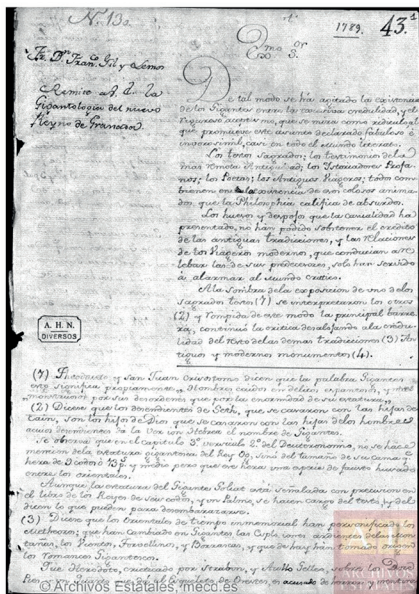 N. 13.
1789.
43.ª
Exmo. Sor.
Fr. Dn. Franco. Gil y Lemos
Remite á V. E. la
Gigantologia del nuevo
Reyno de Granada.
De tal modo se há agitado la existencia
de los Gigantes entre la credulidad, y el
riguroso que se mira como ridiculo el
que promueve este asunto declarado fabuloso é
inverosimil, casi en todo el mundo literato.
Los textos sagrados; los testimonios de la
mas remota antiguedad; los Historiadores Profa-
nos; los Poetas; los Antiguos Viageros; todos com-
bienen en la existencia de estos colosos anima-
dos, que la Philosophia califica de absurdos.
Los huesos y despojos que la casualidad ha
presentado, no han podido sobstener el credito
de las antiguas tradiciones, y las relaciones
de los Viageros modernos, que
las de sus predecesores, solo han servido
á alarmar al mundo critico.
A la sombra de la exposicion de uno de los
sagrados textos (1) se interpretaron los otros
(2) y rompida de este modo la principal barre-
ra, continuó la critica desalojando á la credu-
lidad del resto de las demas tradiciones (3) An-
tiguos y modernos monumentos (4).
A. H. N.
DIVERSOS
(1) Theodoreto y San Juan Crisostomo dicen que la palabra Gigantes
este significa propiamente, Hombres caidos en delitos espantosos, y
monstruosos por sus desordenes que por la enormidad de su estatura.
(2) Dicese que los descendientes de Seth, que se casaron con las hijas de
Cain, son los hijos de Dios que se casaron con las hijas de los hombres
Se observa que en el capitulo 3º versiculo 2º del Deuteronomio, no se hace
mencion de la estatura gigantesca del Rey Og, sinó del tamaño de su cama,
hera de 9 codos y medio pero que era una especie de fausto
entre los orientales.
Aunque la estatura del Gigante Goliat está señalada con precision en
el libro de los Reyes de seis codos, y un Palmo, se hacen cargo del texto, y del
dicen lo que pueden para desembarazarse.
(3) Dicese que los Orientales de tiempo inmemorial han personificado los
Metheoros; que han cambiado en Gigantes las Exploxiones ardientes de los
los Vientos, Torvellinos, y Borrascas, y que de hay han tomado origen
los Romances Gigantescos.
Que Herodoto, criticado por Strabon, y Aulo Gellio, sobre los
© Archivos Estatales, mecd.es
ARCHIVOS